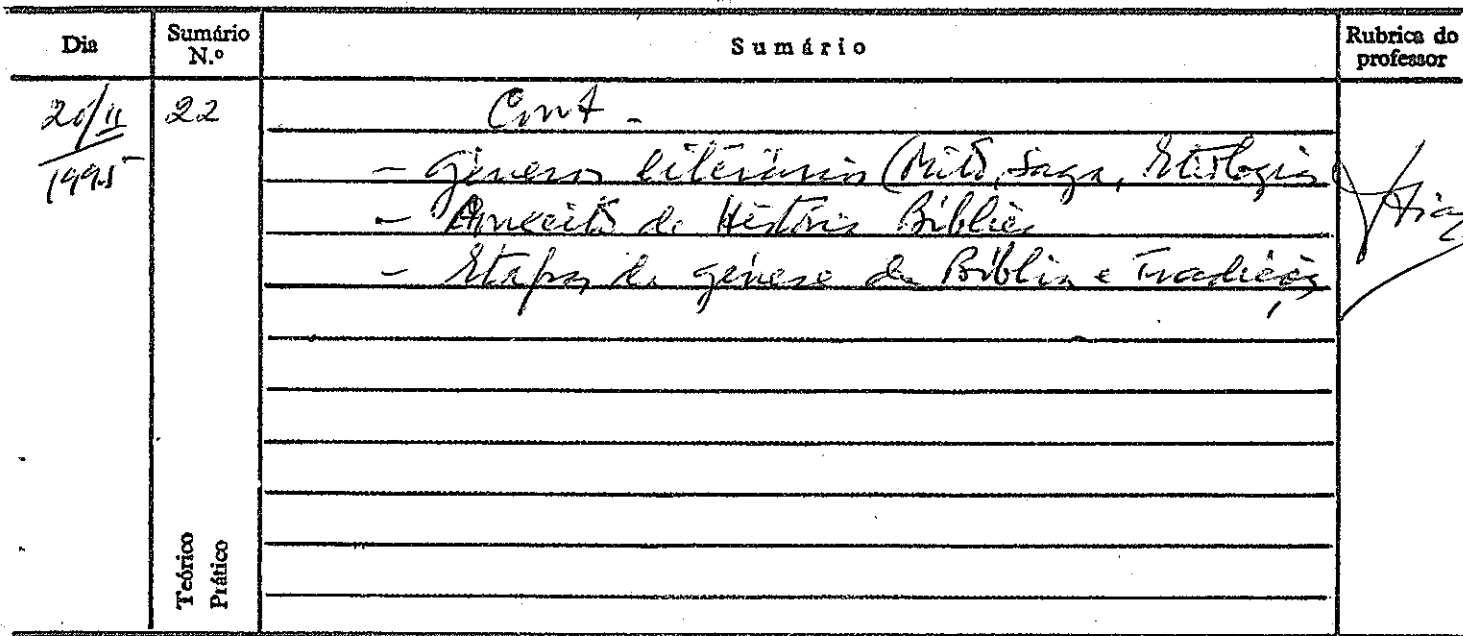 Dia
Sumário N.º
Sumário
Rubrica do professor
22
Cont -
- Géneros literários (Mito, Saga, Etiologia
- Conceito de História Bíblica
- Etapas da génese da Bíblia e Tradições
1995
Teórico
Prático